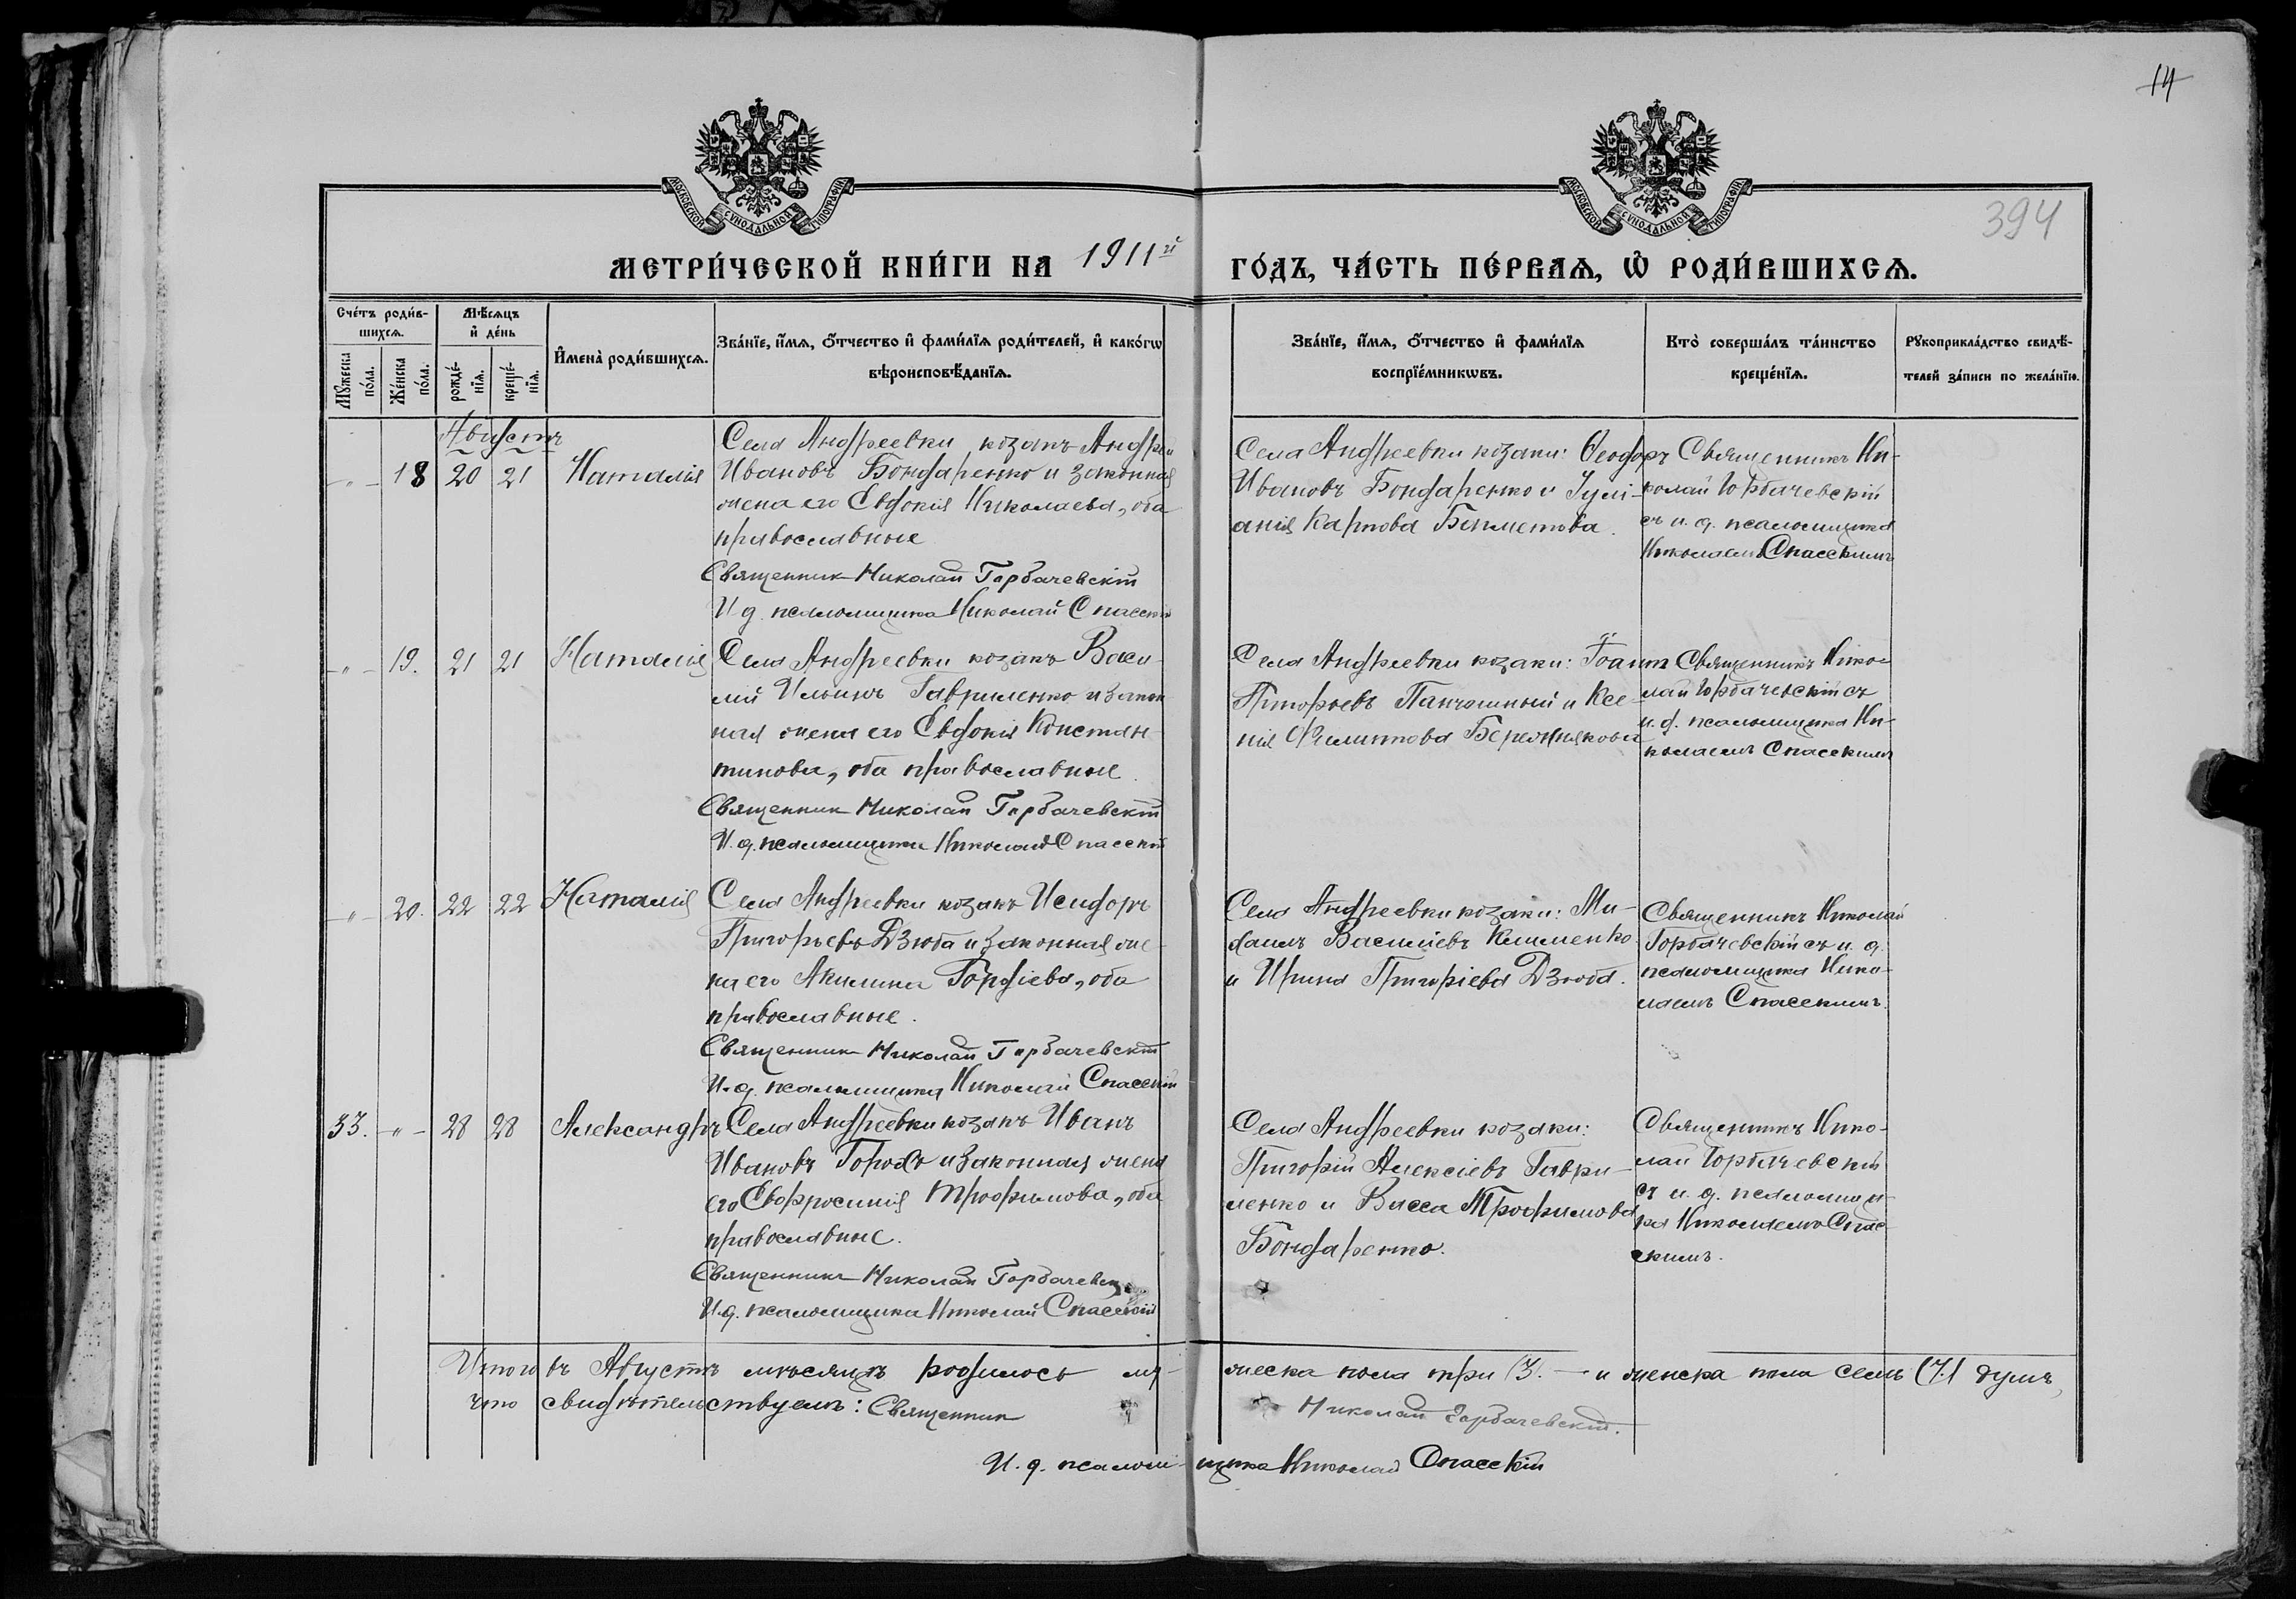 14
394
МОСКОВСКОЙ СѴНОДАЛЬНОЙ ТИПОГРАФІИ
МОСКОВСКОЙ СѴНОДАЛЬНОЙ ТИПОГРАФІИ
МЕТРИ́ЧЕСКОЙ КНИ́ГИ НА 1911й ГО́ДЪ, ЧА́СТЬ ПЕ́РВАѦ, Ѽ РОДИ́ВШИХСѦ.
Сче́тъ роди́в-
шихсѧ.
Мꙋжеска по́ла.
Же́нска по́ла.
Мѣ́сѧцъ
и҆ де́нь
рожде́-
нїѧ.
креще́-
нїѧ.
И҆мена̀ роди́вшихсѧ.
Зва́нїе, и҆́мѧ, ѻ҆́тчество и҆ фами́лїѧ роди́телей, и҆ како́гѡ
вѣроисповѣ́данїѧ.
Зва́нїе, и҆́мѧ, ѻ҆́тчество и҆ фами́лїѧ
воспрїе́мникѡвъ.
Кто̀ соверша́лъ та́инство
креще́нїѧ.
Рꙋкоприкла́дство свидѣ́-
телей за́писи по жела́нїю.
Августъ
-"- 18 20 21 Наталія
Села Андреевки козакъ Андрей
Ивановъ Бондаренко и законная
жена его Евдокія Николаева, оба
православные
Священник Николай Горбачевскій
И. д. псаломщика Николай Спасскій
Села Андреевки козаки: Ѳеодоръ
Ивановъ Бондаренко и Іулі-
анія Карпова
Священникъ Ни-
колай Горбачевскій
съ и. д. псаломщика
Николаемъ Спасскимъ
-"- 19. 21 21 Наталія
Села Андреевки козакъ Васи-
лій Ильинъ Гавриленко и закон
ная жена его Евдокія Констан-
тинова, оба православные.
Священник Николай Горбачевскій
И. д. псаломщика Николай Спасскій
Села Андреевки козаки: Іоанн
Григорьевъ и Ксе-
нія Филиппова
Священникъ Нико-
лай Горбачевскій съ
и. д. псаломщика Ни-
колаемъ Спасскимъ
-"- 20. 22 22 Наталія
Села Андреевки козакъ Исидоръ
Григорьевъ Дзюба и законная же-
на его Акилина Гордіева, оба
православные.
Священник Николай Горбачевскій
И. д. псаломщика Николай Спасскій
Села Андреевки козаки: Ми-
хаилъ Василіевъ Клименко
и Ирина Григоріева Дзюба.
Священникъ Николай
Горбачевскій съ и. д.
псаломщика Нико-
лаемъ Спасскимъ.
33. -"- 28 28 Александръ
Села Андреевки козакъ Иванъ
Ивановъ Горохъ и законная жена
его Евфросинія Трофимова, оба
православные.
Священникъ Николай Горбачевск
И. д. псаломщика Николай Спасскій
Села Андреевки козаки:
Григорій Алексіевъ Гаври-
ленко и Васса Трофимова
Бондаренко.
Священникъ Нико-
лай Горбачевскій
съ и. д. псаломщи-
ка Николаемъ Спас-
скимъ.
Итого въ Августѣ мѣсяцѣ родилось му-жеска пола три (3. — и женска пола семь (7.) душъ,
что свидѣтельствуемъ: Священник Николай Горбачевскій.
И. д. псалом-щика Николай Спасскій